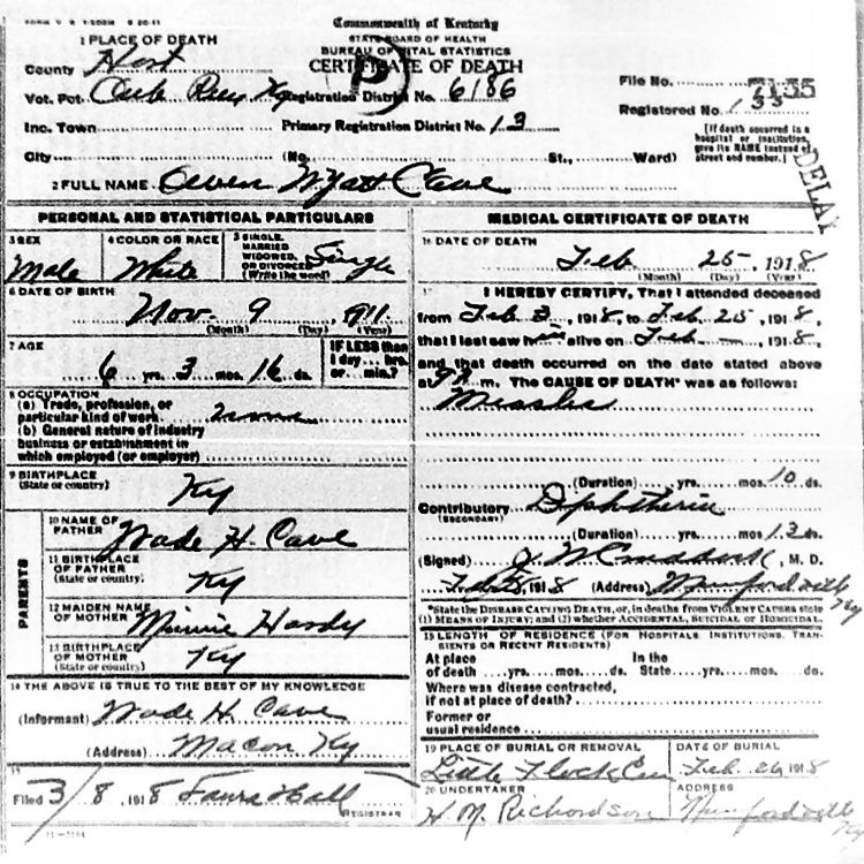 Commonwealth of Kentucky
STATE BOARD OF HEALTH
BUREAU OF VITAL STATISTICS
CERTIFICATE OF DEATH
1 PLACE OF DEATH
County Hart
Vot. Pct. Cub Run Ky Registration District No. 6186
Inc. Town Primary Registration District No. 13
City (No. St., Ward)
File No. 7155
Registered No. 133
[If death occurred in a hospital or institution, give its NAME instead of street and number.]
DELAY
P
2 FULL NAME Owen Wyatt Cave
PERSONAL AND STATISTICAL PARTICULARS
3 SEX
Male
4 COLOR OR RACE
White
5 SINGLE, MARRIED WIDOWED, OR DIVORCED (Write the word)
Single
6 DATE OF BIRTH
Nov. 9, 1911
(Month) (Day) (Year)
7 AGE
6 yrs. 3 mos. 16 ds.
IF LESS than 1 day... hrs. or... min.?
8 OCCUPATION
(a) Trade, profession, or
particular kind of work none
(b) General nature of industry
business or establishment in
which employed (or employer)
9 BIRTHPLACE
(State or country)
Ky
PARENTS
10 NAME OF FATHER Wade H. Cave
11 BIRTHPLACE OF FATHER (State or country) Ky
12 MAIDEN NAME OF MOTHER Minnie Hardy
13 BIRTHPLACE OF MOTHER (State or country) Ky
14 THE ABOVE IS TRUE TO THE BEST OF MY KNOWLEDGE
(Informant) Wade H. Cave
(Address) Macon Ky
15
Filed 3/8, 1918 Hall
REGISTRAR
MEDICAL CERTIFICATE OF DEATH
16 DATE OF DEATH
Feb. 25, 1918
(Month) (Day) (Year)
17 I HEREBY CERTIFY, That I attended deceased
from Feb 3, 1918, to Feb. 25, 1918,
that I last saw him alive on Feb —, 1918,
and that death occurred on the date stated above
at 9 P m. The CAUSE OF DEATH* was as follows:
Missles
(Duration) yrs. mos. 10 ds.
Contributory Dphtheria
(SECONDARY)
(Duration) yrs. mos. 13 ds.
(Signed) , M. D.
Feb 28, 1918 (Address) Munfordville Ky
*State the DISEASE CAUSING DEATH, or, in deaths from VIOLENT CAUSES state
(1) MEANS OF INJURY; and (2) whether ACCIDENTAL, SUICIDAL OR HOMICIDAL
18 LENGTH OF RESIDENCE (FOR HOSPITALS, INSTITUTIONS, TRANSIENTS OR RECENT RESIDENTS)
At place In the
of death yrs. mos. ds. State yrs. mos. ds.
Where was disease contracted,
if not at place of death?
Former or
usual residence
19 PLACE OF BURIAL OR REMOVAL
Little Flock Cem
DATE OF BURIAL
Feb. 26 1918
20 UNDERTAKER
H. M. Richardson
ADDRESS
Munfordville Ky